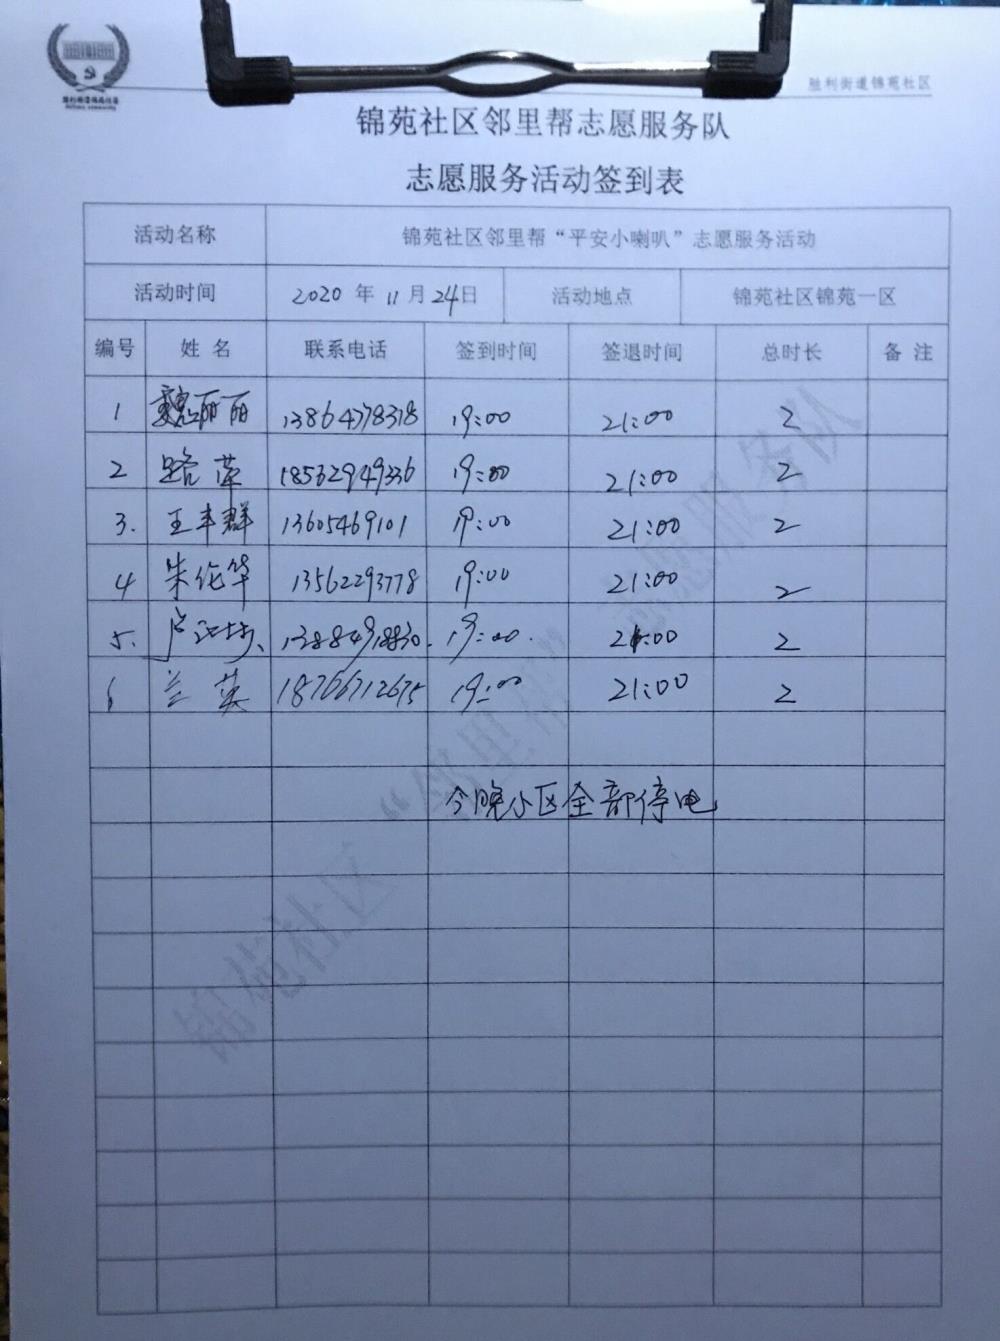 胜利街道锦苑社区
锦苑社区邻里帮志愿服务队
志愿服务活动签到表
活动名称 锦苑社区邻里帮“平安小喇叭”志愿服务活动
活动时间 2020 年 11 月 24日 活动地点 锦苑社区锦苑一区
编号 姓 名 联系电话 签到时间 签退时间 总时长 备 注
1 魏丽丽 13864378318 19:00 21:00 2
2 路萍 18562949336 19:00 21:00 2
3. 王丰群 13605469101 19:00 21:00 2
4 朱伦华 13562293778 19:00 21:00 2
5. 卢 19:00. 21:00 2
6 兰英 18766712675 19:00 21:00 2
今晚小区全部停电
锦苑社区“邻里帮”志愿服务队